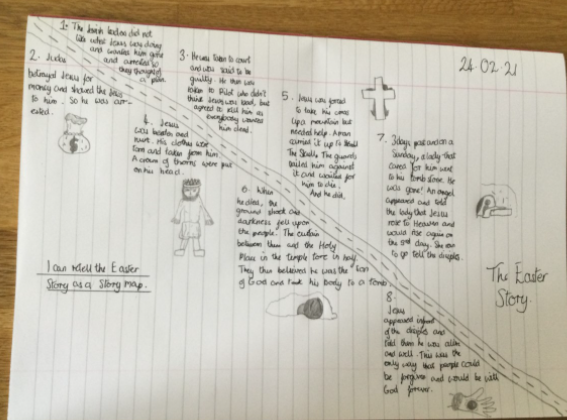 24.02.21
1. The Jewish leaders did not
like what Jesus was doing
and wanted him gone
and arrested so
they thought of
a plan.
2. Judas
betrayed Jesus for
money and showed the
to him. So he was arr-
ested.
3. He was taken to court
and was said to be
guilty. He then was
taken to Pilot who didn't
think Jesus was bad, but
agreed to kill him as
everybody wanted
him dead.
4. Jesus
was beaten and
hurt. His clothes were
torn and taken from him.
A crown of thorns were put
on his head.
5. Jesus was forced
to take his cross
up a mountain but
needed help. A man
carried it up to
The Skull. The guards
nailed him against
it and waited for
him to die.
And he did.
6. When
he died, the
ground shook and
darkness fell upon
the people. The curtain
between them and the Holy
Place in the temple tore in half.
They then believed he was the Son
of God and took his body to a tomb.
7. 3 days past and on a
Sunday, a lady that
cared for him went
to his tomb stone. He
was gone! An angel
appeared and told
the lady that Jesus
rose to Heaven and
would rise again on
the 3rd day. She ran
to go tell the disciples.
8.
Jesus
appeared infront
of the disciples and
told them he was alive
and well. This was the
only way that people could
be forgiven and would be with
God forever.
I can retell the Easter
Story as a Story map.
The Easter
Story.